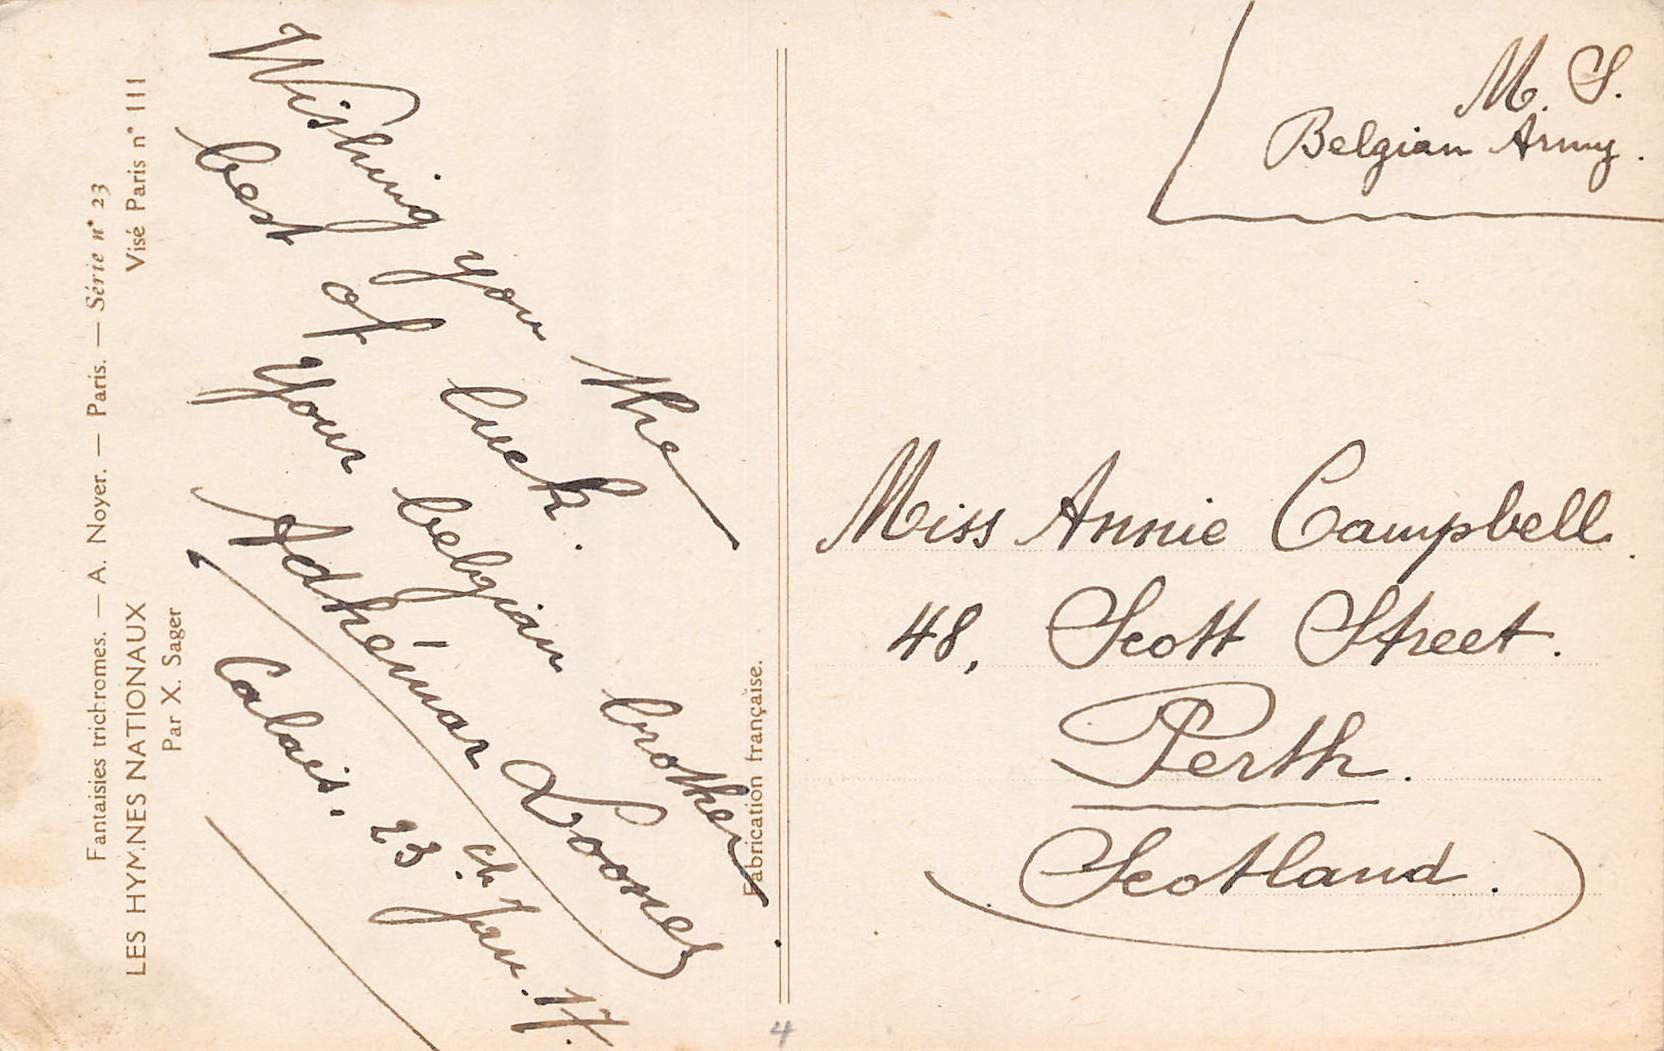 Fantaisies trichromes. — A. Noyer. — Paris. — Série n° 23
Visé Paris n° 111
LES HYMNES NATIONAUX
Par X. Sager
Wishing you the
best of luck.
Your belgian brother
Adhémar Loones
Calais, 23th Jan. 17.
Fabrication française.
M. S.
Belgian Army.
Miss Annie Campbell.
48, Scott Street.
Perth.
Scotland.
4